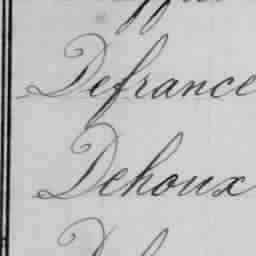 Defrance
Dehoux